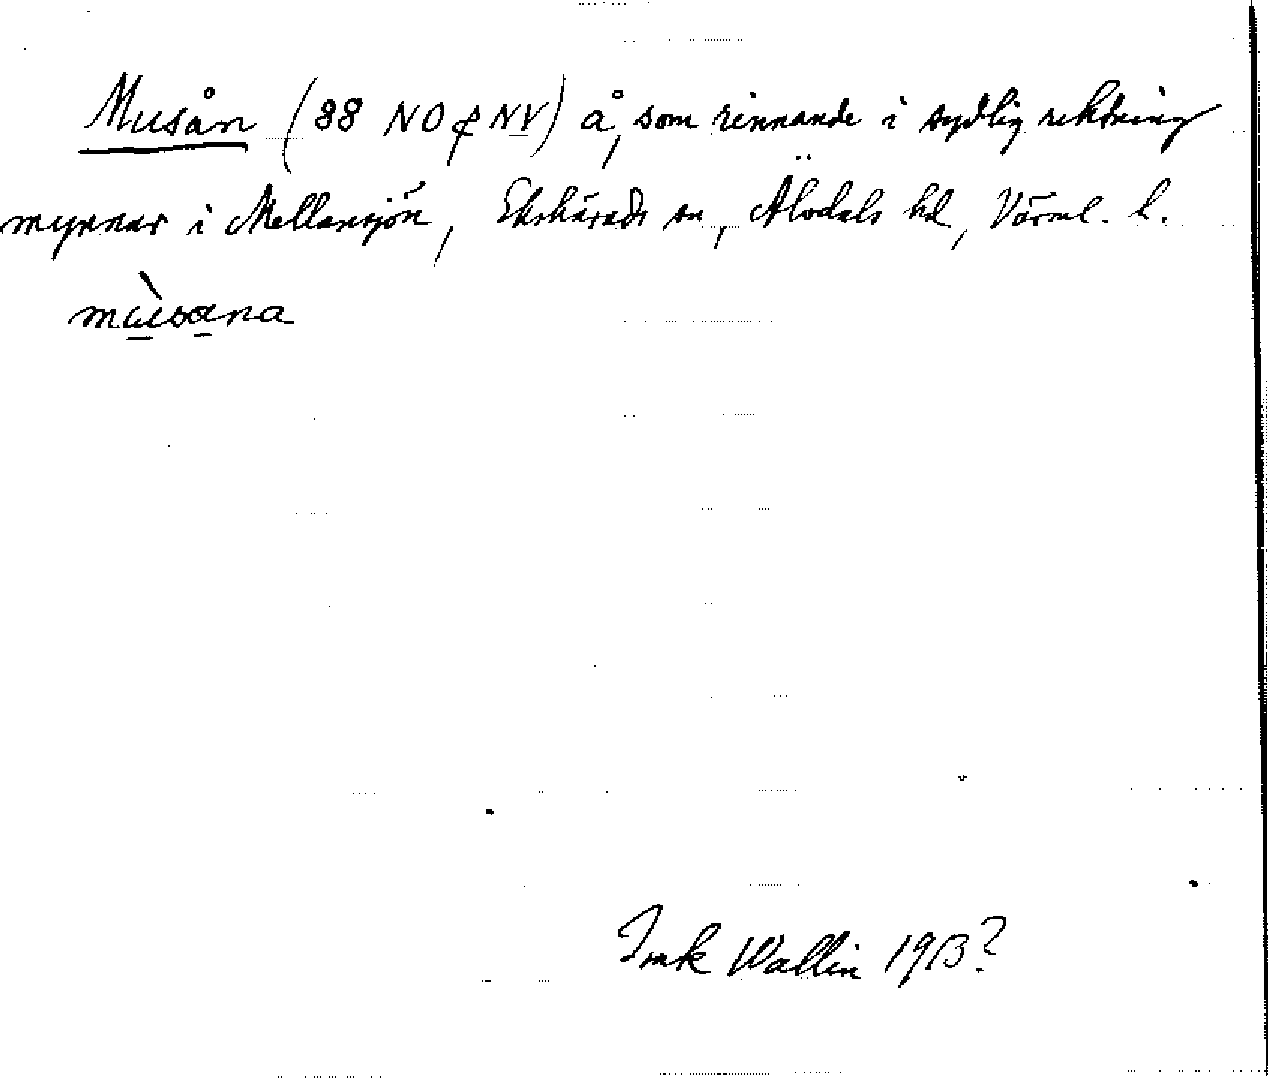 Musån (88 NO & NV) å, som rinnande i sydlig riktning
mynnar i Mellansjön, Ekshärads sn, Älvdals hd, Värml. l.
mùsana
Wallin 1913?